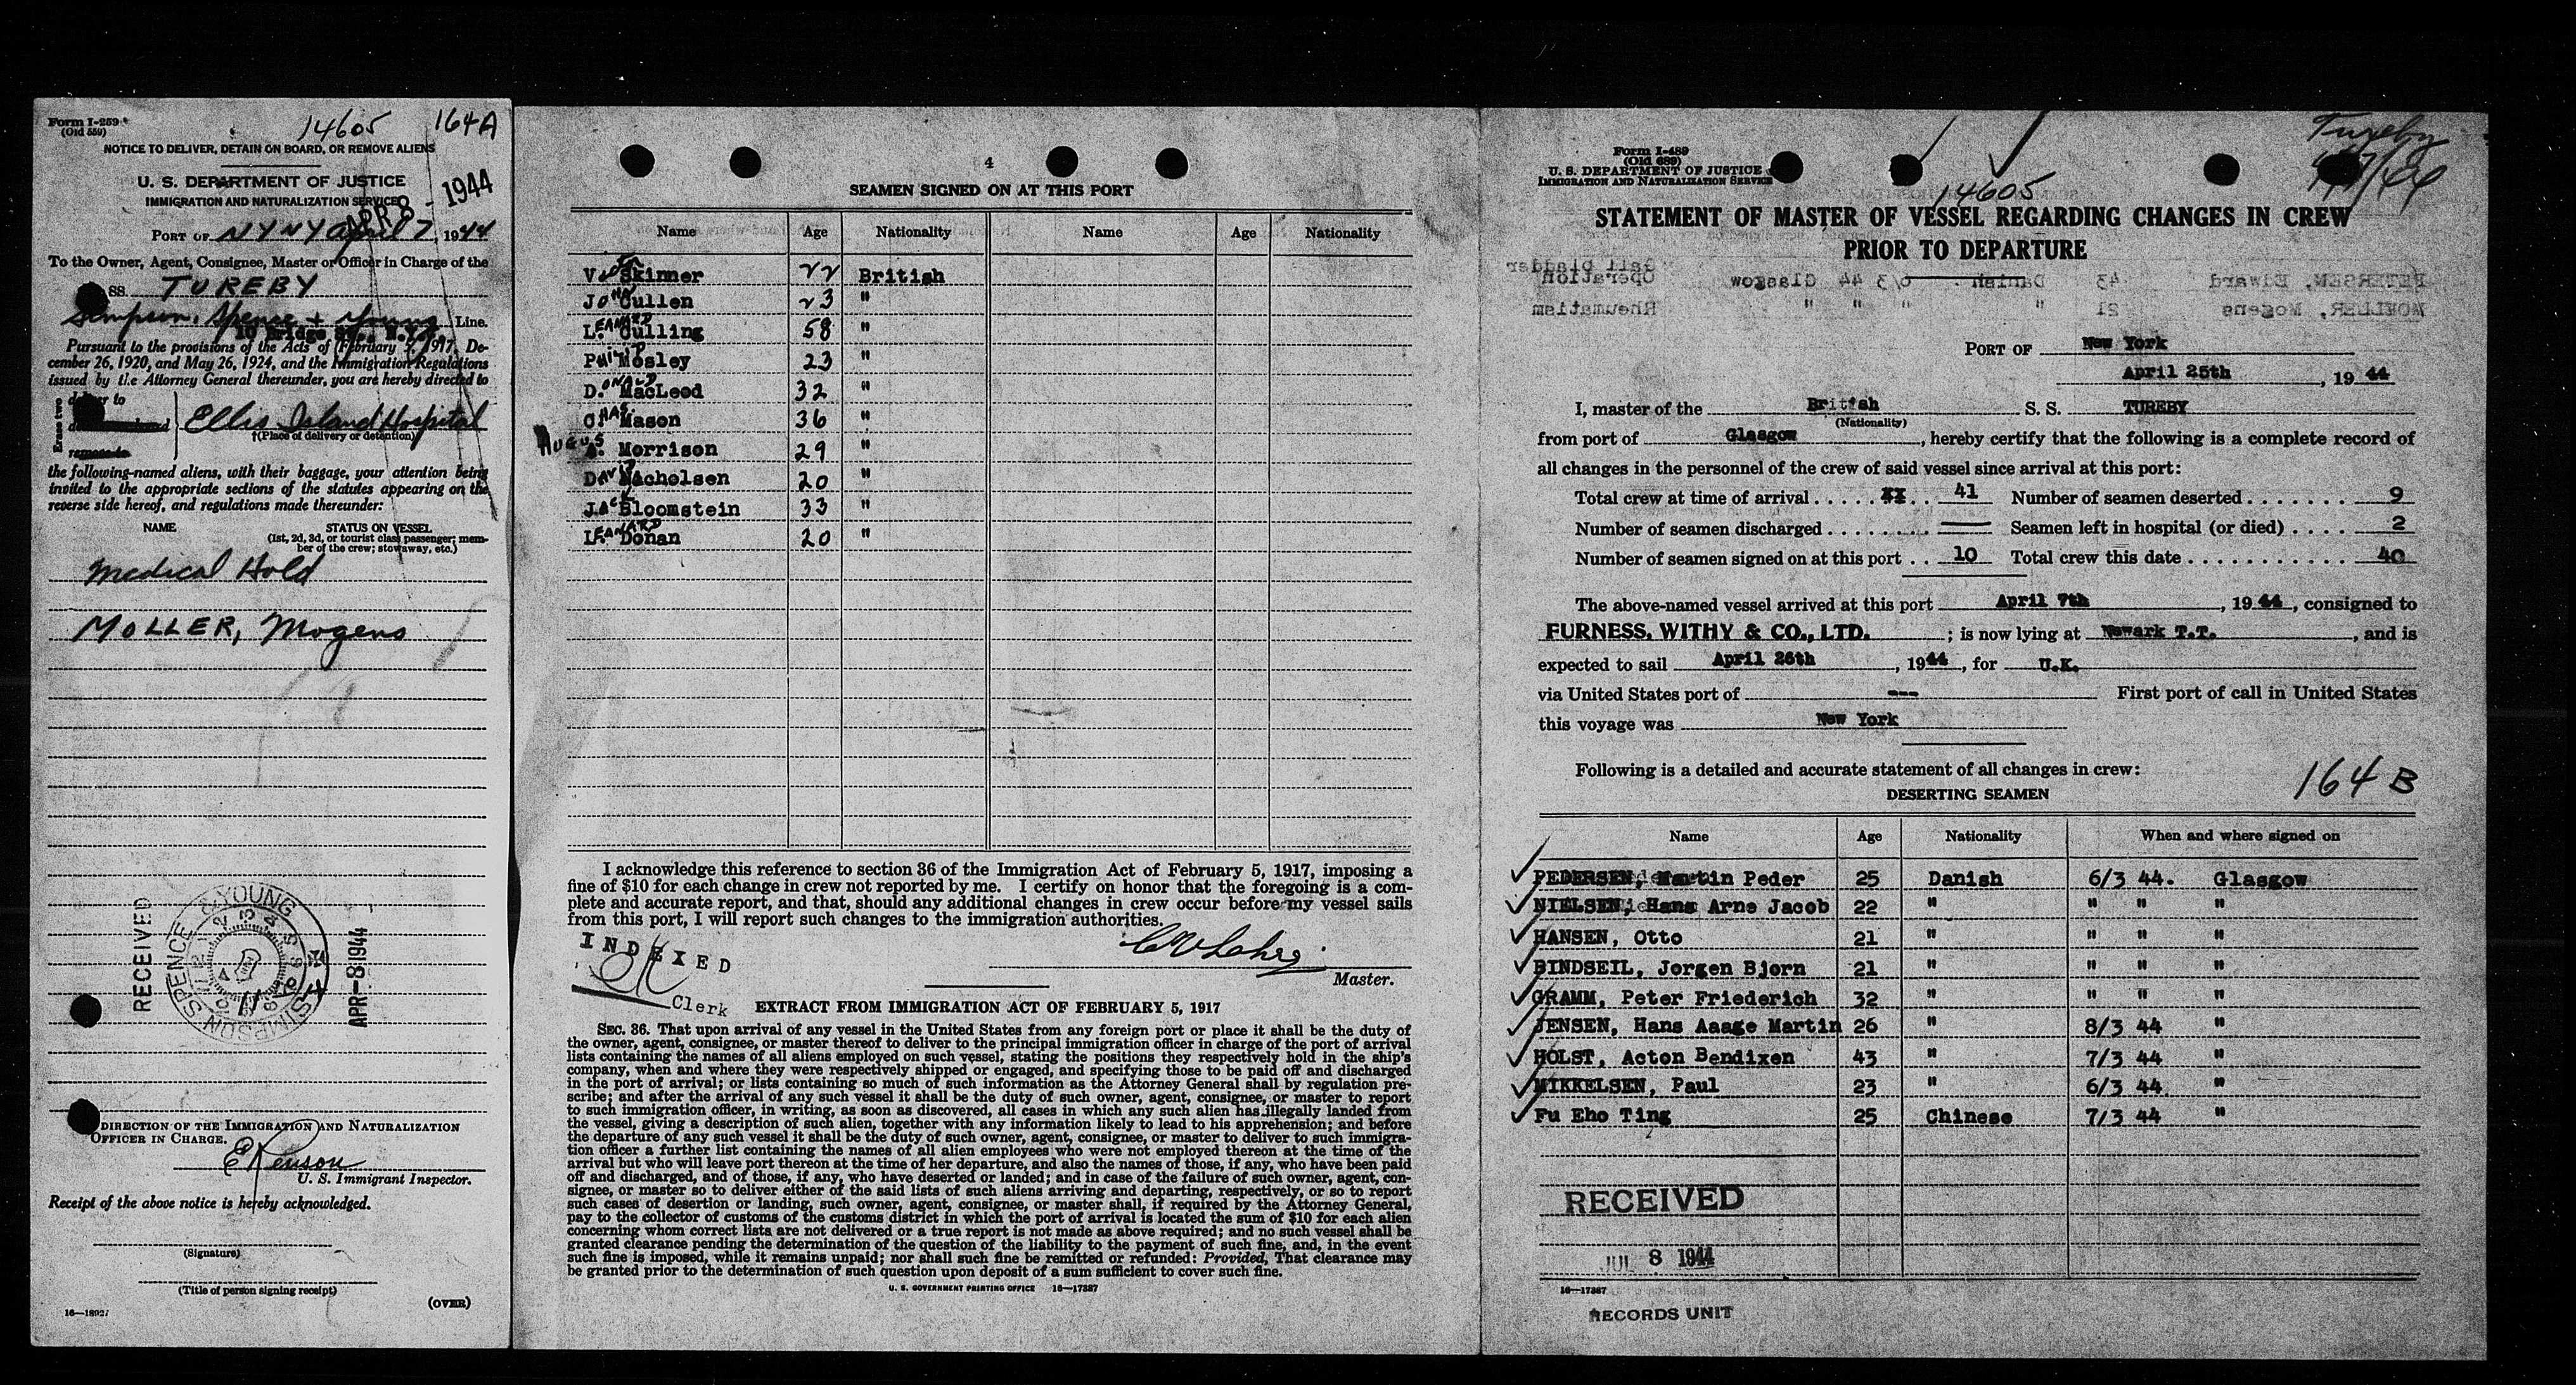 Form I-259
(Old 559)
14605 164A
NOTICE TO DELIVER, DETAIN ON BOARD, OR REMOVE ALIENS
U. S. DEPARTMENT OF JUSTICE
IMMIGRATION AND NATURALIZATION SERVICE
APR 8 - 1944
PORT OF N Y N Y April 7, 1944
To the Owner, Agent, Consignee, Master or Officer in Charge of the
SS. TUREBY
Simpson, Spence + Young Line.
Pursuant to the provisions of the Acts of February 5, 1917, De-
cember 26, 1920, and May 26, 1924, and the Immigration Regulations
issued by the Attorney General thereunder, you are hereby directed to
Erase two
deliver to
Ellis Island Hospital
†(Place of delivery or detention)
the following-named aliens, with their baggage, your attention being
invited to the appropriate sections of the statutes appearing on the
reverse side hereof, and regulations made thereunder:
NAME STATUS ON VESSEL
(1st, 2d, 3d, or tourist class passenger; mem-
ber of the crew; stowaway, etc.)
Medical Hold
MOLLER, Mogens
RECEIVED
SIMPSON SPENCE & YOUNG
APR-8 1944
DIRECTION OF THE IMMIGRATION AND NATURALIZATION
OFFICER IN CHARGE.
U. S. Immigrant Inspector.
Receipt of the above notice is hereby acknowledged.
(Signature)
(Title of person signing receipt)
16—18927 (OVER)
4
SEAMEN SIGNED ON AT THIS PORT
Name Age Nationality Name Age Nationality
Skinner 22 British
JOHN Cullen 23 "
LEANARD Culling 58 "
PHILIP Mosley 23 "
DONALD MacLeod 32 "
CHAS. Mason 36 "
Morrison 29 "
DAVID Nacholsen 20 "
JACK Bloomstein 33 "
LEANARD Donan 20 "
I acknowledge this reference to section 36 of the Immigration Act of February 5, 1917, imposing a
fine of $10 for each change in crew not reported by me. I certify on honor that the foregoing is a com-
plete and accurate report, and that, should any additional changes in crew occur before my vessel sails
from this port, I will report such changes to the immigration authorities.
INDEXED
Master.
Clerk
EXTRACT FROM IMMIGRATION ACT OF FEBRUARY 5, 1917
SEC. 36. That upon arrival of any vessel in the United States from any foreign port or place it shall be the duty of
the owner, agent, consignee, or master thereof to deliver to the principal immigration officer in charge of the port of arrival
lists containing the names of all aliens employed on such vessel, stating the positions they respectively hold in the ship's
company, when and where they were respectively shipped or engaged, and specifying those to be paid off and discharged
in the port of arrival; or lists containing so much of such information as the Attorney General shall by regulation pre-
scribe; and after the arrival of any such vessel it shall be the duty of such owner, agent, consignee, or master to report
to such immigration officer, in writing, as soon as discovered, all cases in which any such alien has illegally landed from
the vessel, giving a description of such alien, together with any information likely to lead to his apprehension; and before
the departure of any such vessel it shall be the duty of such owner, agent, consignee, or master to deliver to such immigra-
tion officer a further list containing the names of all alien employees who were not employed thereon at the time of the
arrival but who will leave port thereon at the time of her departure, and also the names of those, if any, who have been paid
off and discharged, and of those, if any, who have deserted or landed; and in case of the failure of such owner, agent, con-
signee, or master so to deliver either of the said lists of such aliens arriving and departing, respectively, or so to report
such cases of desertion or landing, such owner, agent, consignee, or master shall, if required by the Attorney General,
pay to the collector of customs of the customs district in which the port of arrival is located the sum of $10 for each alien
concerning whom correct lists are not delivered or a true report is not made as above required; and no such vessel shall be
granted clearance pending the determination of the question of the liability to the payment of such fine, and, in the event
such fine is imposed, while it remains unpaid; nor shall such fine be remitted or refunded: Provided, That clearance may
be granted prior to the determination of such question upon deposit of a sum sufficient to cover such fine.
U. S. GOVERNMENT PRINTING OFFICE 16—17387
Tureby
Form I-489
(Old 689)
U. S. DEPARTMENT OF JUSTICE
IMMIGRATION AND NATURALIZATION SERVICE
14605
STATEMENT OF MASTER OF VESSEL REGARDING CHANGES IN CREW
PRIOR TO DEPARTURE
PETERSEN, Edward 43 Danish 6/3 44 Glasgow Gall Bladder Operation
MOELLER, Mogens 21 " " " " Rheumatism
PORT OF New York
April 25th, 1944
I, master of the British S. S. TUREBY
(Nationality)
from port of Glasgow, hereby certify that the following is a complete record of
all changes in the personnel of the crew of said vessel since arrival at this port:
Total crew at time of arrival . . . . . 41 Number of seamen deserted . . . . . . . 9
Number of seamen discharged . . . . . . . . — Seamen left in hospital (or died) . . . . 2
Number of seamen signed on at this port . . 10 Total crew this date . . . . . . . . . . . 40
The above-named vessel arrived at this port April 7th, 1944, consigned to
FURNESS, WITHY & CO., LTD. ; is now lying at Newark T.T., and is
expected to sail April 26th, 1944, for U.K.
via United States port of --- First port of call in United States
this voyage was New York
Following is a detailed and accurate statement of all changes in crew:
164 B
DESERTING SEAMEN
Name Age Nationality When and where signed on
PEDERSEN, Martin Peder 25 Danish 6/3 44. Glasgow
NIELSEN, Hans Arne Jacob 22 " " " "
HANSEN, Otto 21 " " " "
BINDSEIL, Jorgen Bjorn 21 " " " "
GRAMM, Peter Friederich 32 " " " "
JENSEN, Hans Aaage Martin 26 " 8/3 44 "
HOLST, Acton Bendixen 43 " 7/3 44 "
MIKKELSEN, Paul 23 " 6/3 44 "
Fu Eho Ting 25 Chinese 7/3 44 "
RECEIVED
JUL 8 1944
16—17387
RECORDS UNIT